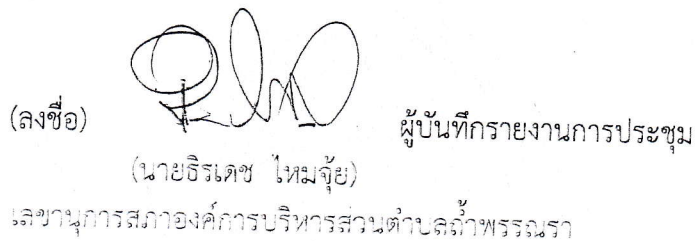 (ลงชื่อ) ผู้บันทึกรายงานการประชุม
(นายธิรเดช ไหมจุ้ย)
เลขานุการสภาองค์การบริหารส่วนตำบลถ้ำพรรณรา